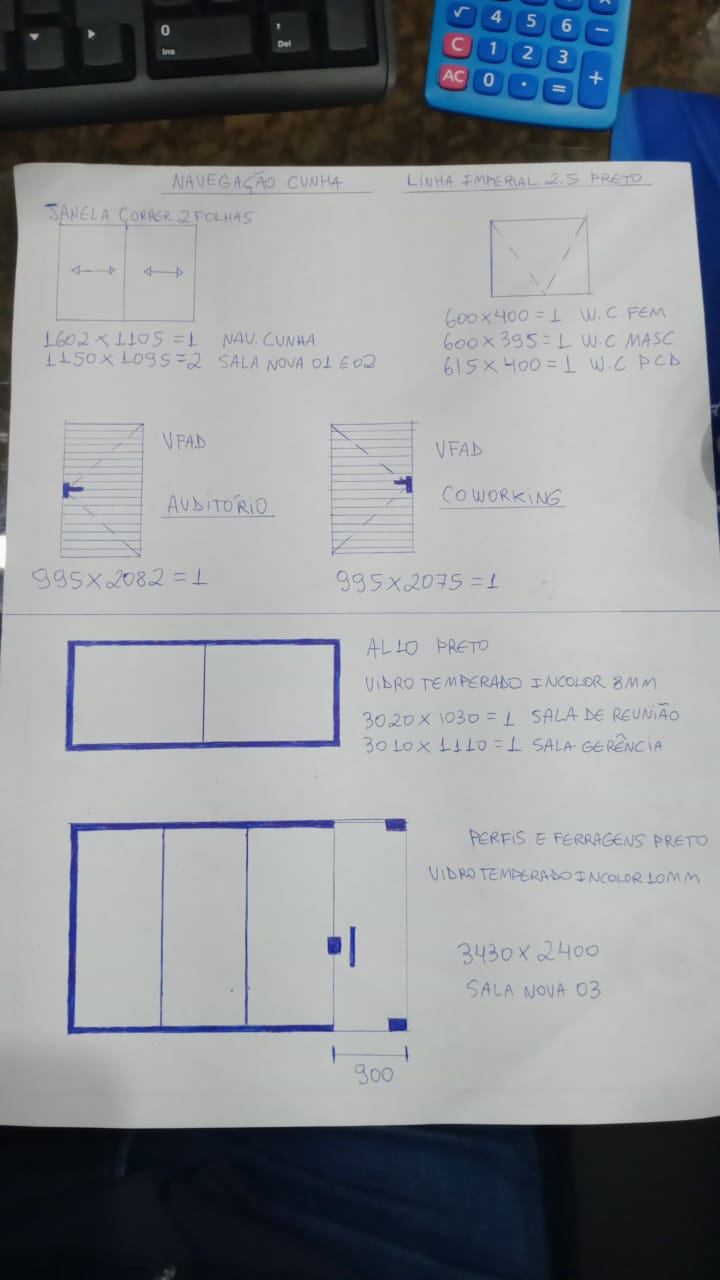 0
Ins
,
Del
√ 4 5 6 −
C 1 2 3
AC 0 · = +
NAVEGAÇÃO CUNHA
LINHA IMPERIAL 2.5 PRETO
JANELA CORRER 2 FOLHAS
1602 x 1105 = 1 NAV. CUNHA
1150 x 1095 = 2 SALA NOVA 01 E 02
600 x 400 = 1 W.C FEM
600 x 395 = 1 W.C MASC
615 x 400 = 1 W.C PCD
VFAD
AUDITÓRIO
995 x 2082 = 1
VFAD
COWORKING
995 x 2075 = 1
AL10 PRETO
VIDRO TEMPERADO INCOLOR 8MM
3020 x 1030 = 1 SALA DE REUNIÃO
3010 x 1110 = 1 SALA GERÊNCIA
PERFIS E FERRAGENS PRETO
VIDRO TEMPERADO INCOLOR 10MM
3430 x 2400
SALA NOVA 03
900